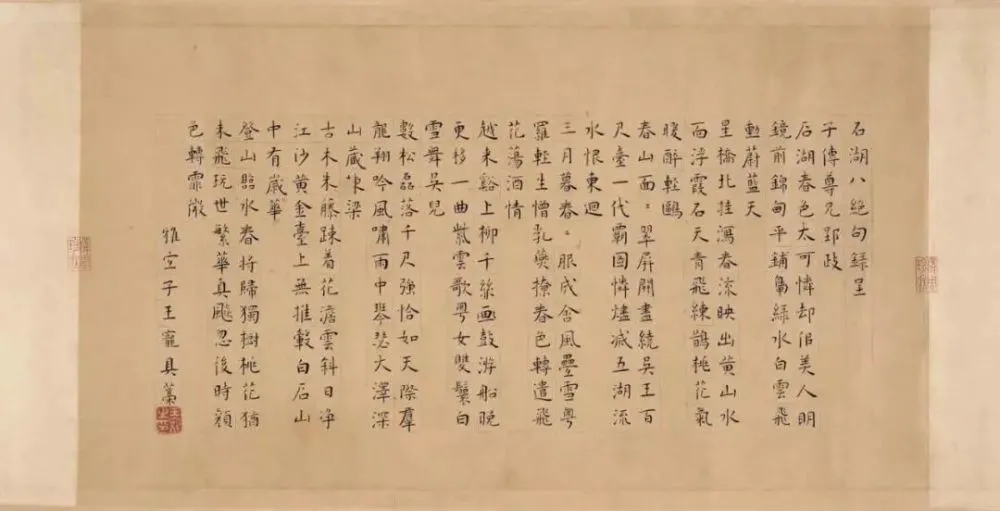 石湖八絶句録呈
子傳尊兄郢政
石湖春色太可憐却佀美人明
鏡前錦甸平鋪鳧緑水白雲飛
動蔚藍天
星橋北挂瀉春流映出黄山水
面浮霞石天青飛練鵲桃花氣
暖醉輕鷗
春山面〻翠屏開盡繞吳王百
尺臺一代霸圖憐燼滅五湖流
水恨東迴
三月暮春〻服成含風疊雪粤
羅輕生憎乳燕撩春色轉遣飛
花蕩酒情
越来谿上柳千絲画鼓游船晚
更移一曲紫雲歌粤女雙鬟白
雪舞吳兒
數松磊落千尺強恰如天際羣
龍翔吟風嘯雨中琴瑟大澤深
山歲棟梁
古木朱藤踈着花澹雲斜日净
江沙黄金臺上無推轂白石山
中有歲華
登山臨水春將歸獨樹桃花猶
未飛玩世繁華真飈忽後時顔
色轉霏微
雅宜子王寵具藁